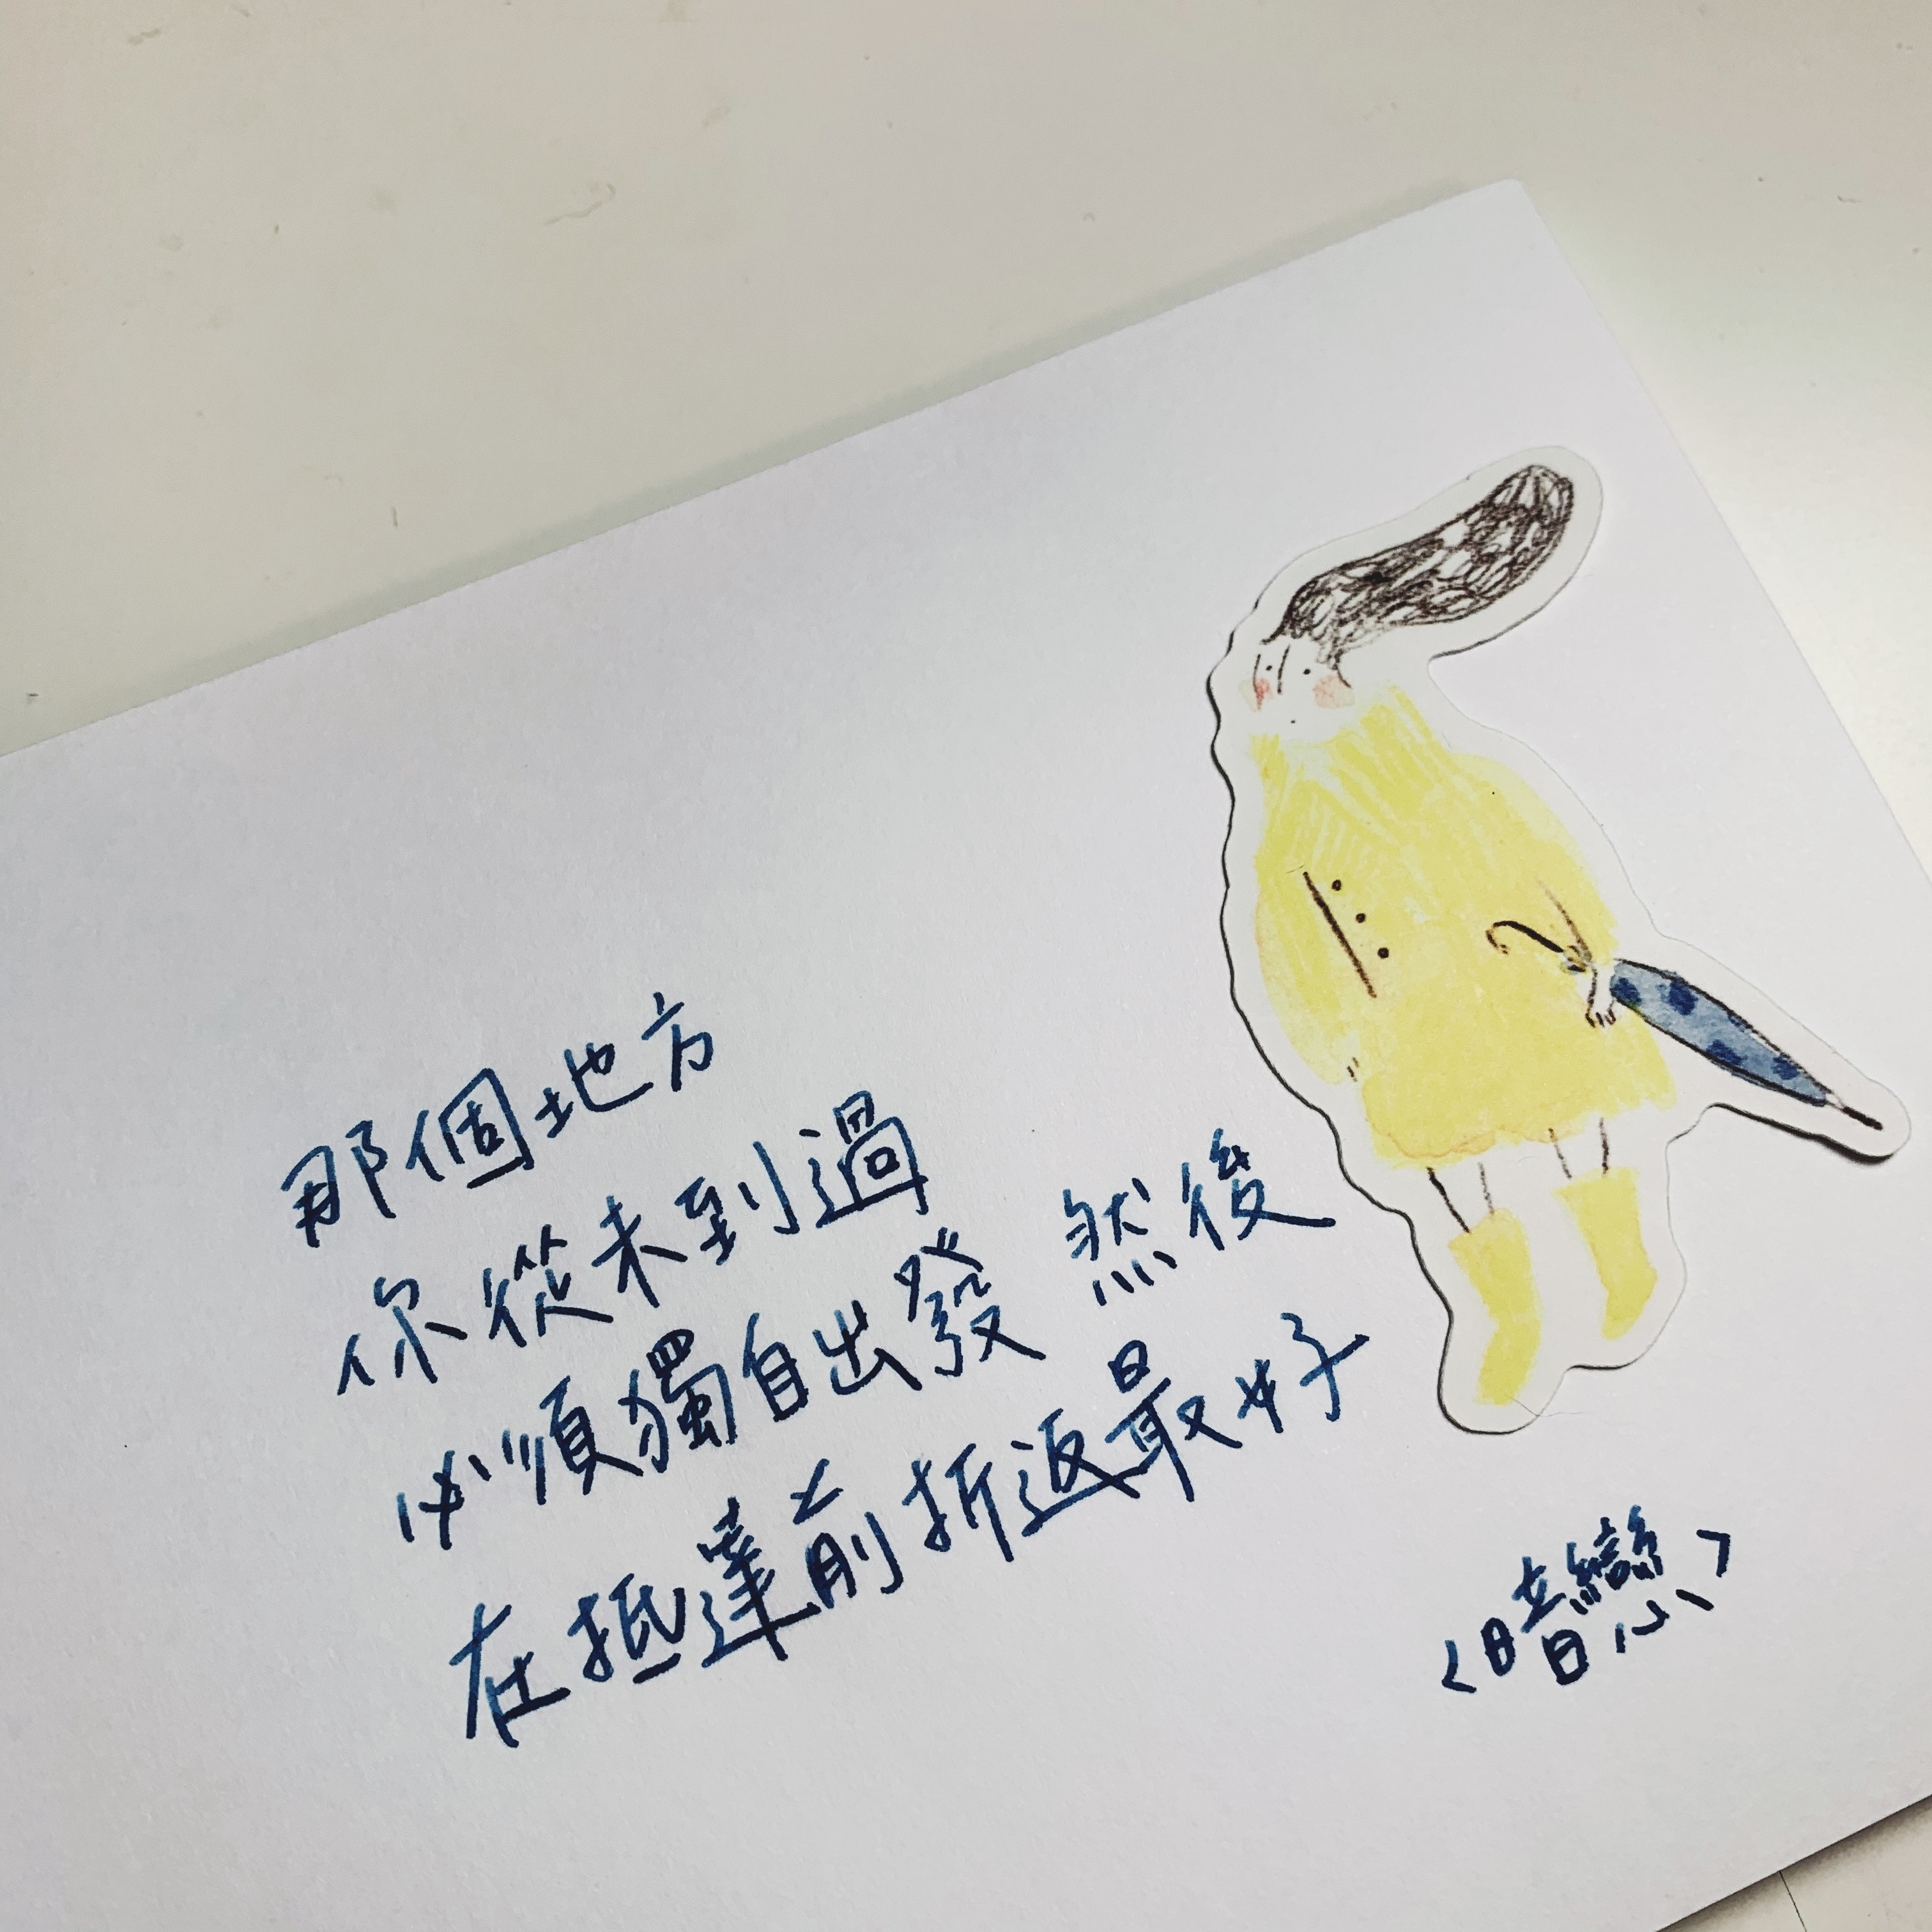 那個地方
你從未到過
必須獨自出發 然後
在抵達前折返最好
〈暗戀〉